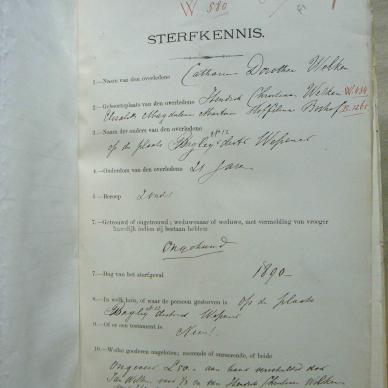 W 580
STERFKENNIS.
1.—Naam van den overledene Catharina Dorothea Welken
2.—Geboorteplaats van den overledene Hendrik Christiaan Welken W.434
Magdalena Boshof B.1265
3.—Naam der ouders van den overledene
op de plaats Bagley distr Wepener
4.—Ouderdom van den overledene 21 Jaren
5.—Beroep
7.—Getrouwd of ongetrouwd; weduwenaar of weduwe, met vermelding van vroeger
huwelijk indien zij bestaan hebben
Ongehuwd
7.—Dag van het sterfgeval 1890—
8.—In welk huis, of waar de persoon gestorven is Op de plaats
Bagley district Wepener
9.—Of er een testament is Neen!
10.—Welke goederen nagelaten; roerende of onroerende, of beide
Ongeveer £50.— aan haar verschuldigd door
Jan Welken en van Hendrik Christiaan Welken